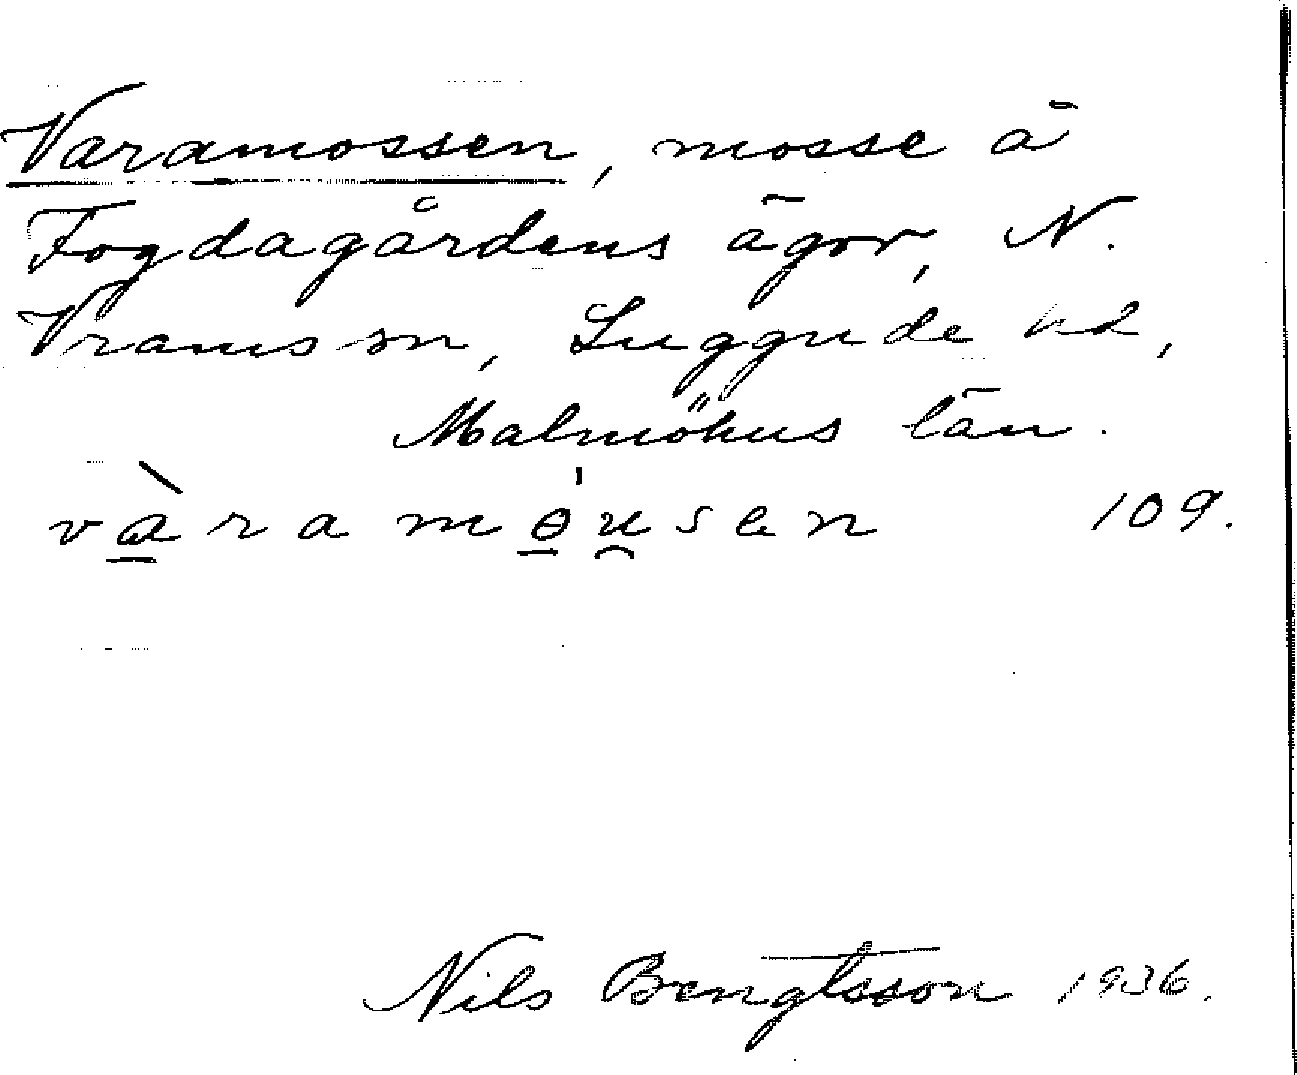 Varamossen, mosse å
Fogdagårdens ägor, N.
Vrams sn, Luggude hd,
Malmöhus län.
v à̱ r a m ɵ̱́ u̯ s e n 109.
Nils Bengtsson 1936.